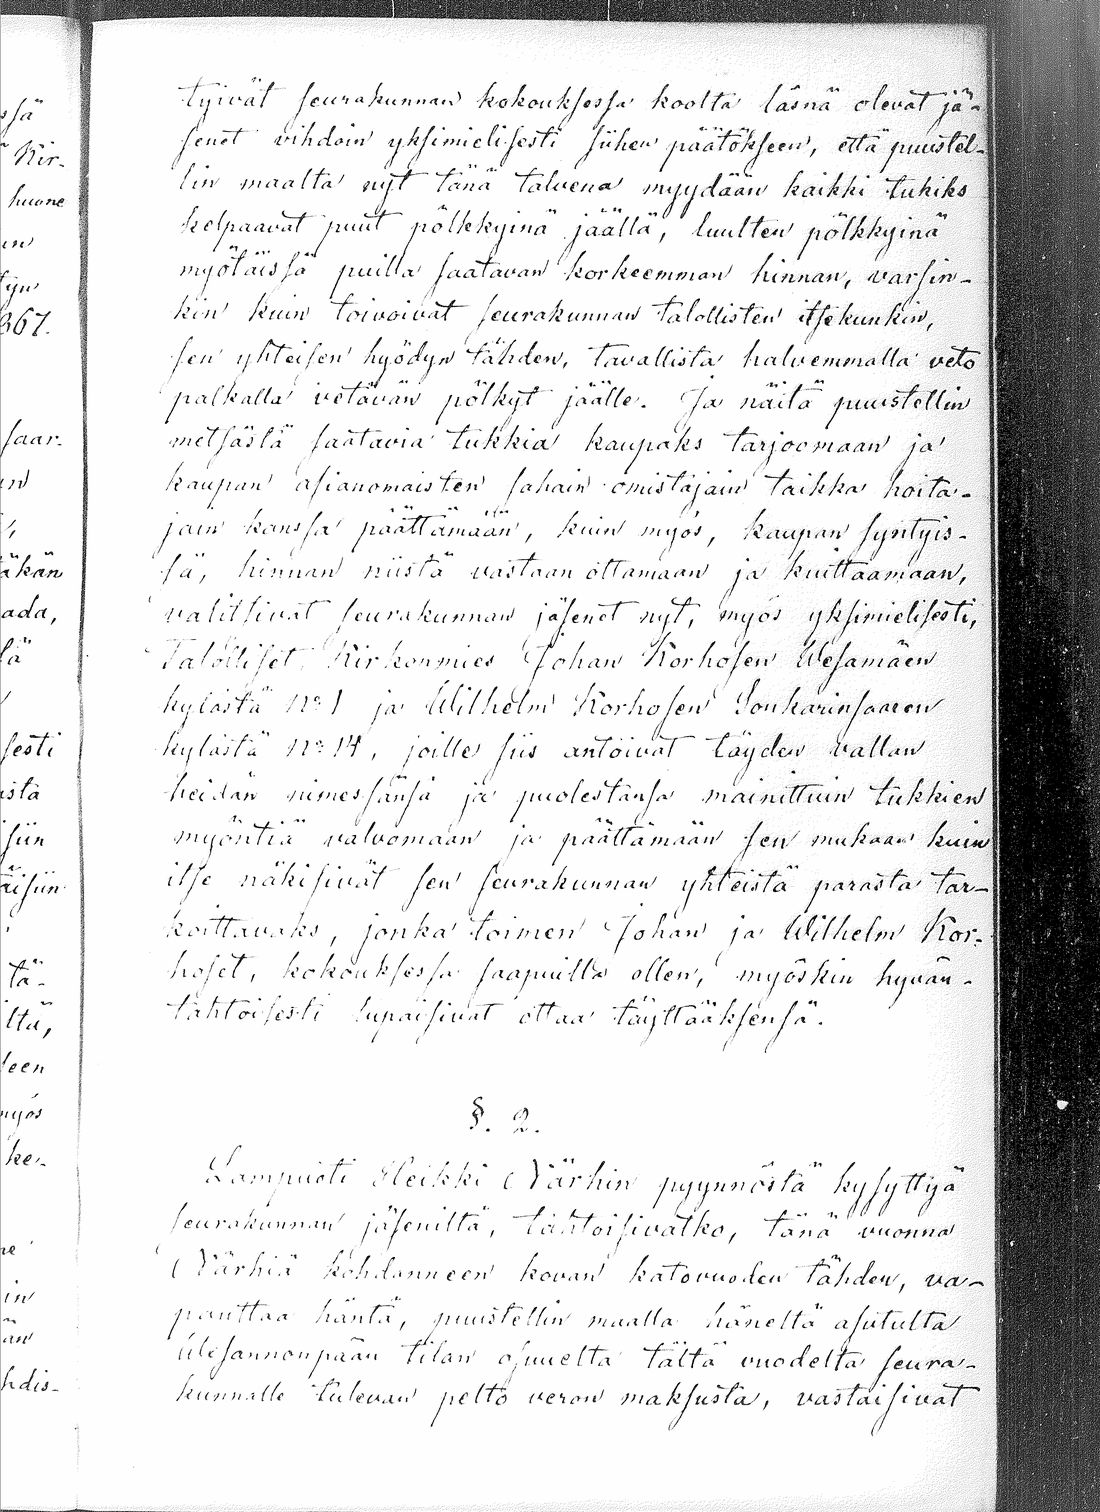 ssä
Kir-
huone
en
tyn
867.
saar-
in
äkän
ada,
lä
sesti
ista
siin
äisiin
tä-
iltä,
leen
myös
ke-
ne
in
än
hdis-
tyivät seurakunnan kokouksessa koolta läsnä olevat jä-
senet vihdoin yksimielisesti siihen päätökseen, että puustel-
lin maalta nyt tänä talvena myydään kaikki tukiks
kelpaavat puut pölkkyinä jäällä, luulten pölkkyinä
myötäissä puilla saatavan korkeemman hinnan, varsin-
kin kuin toivoivat seurakunnan talollisten itsekunkin,
sen yhteisen hyödyn tähden, tavallista halvemmalla veto
palkalla vetävän pölkyt jäälle. Ja näitä puustellin
metsästä saatavia tukkia kaupaks tarjoomaan ja
kaupan asianomaisten sahain omistajain taikka hoita-
jain kanssa päättämään, kuin myös, kaupan syntyis-
sä, hinnan niistä vastaan ottamaan ja kuittaamaan,
valitsivat seurakunnan jäsenet nyt, myös yksimielisesti,
Talolliset Kirkonmies Johan Korhosen Wesamäen
kylästä No 1 ja Wilhelm Korhosen Sonkarinsaaren
kylästä No 14, joille siis antoivat täyden vallan
heidän nimessänsä ja puolestansa mainittuin tukkien
myöntiä valvomaan ja päättämään sen mukaan kuin
itse näkisivät sen seurakunnan yhteistä parasta tar-
koittavaks, jonka toimen Johan ja Wilhelm Kor-
hoset, kokouksessa saapuilla ollen, myöskin hyvän-
tahtoisesti lupaisivat ottaa täyttääksensä.
§. 2.
Lampuoti Heikki Närhin pyynnöstä kysyttyä
seurakunnan jäseniltä, tahtoisivatko, tänä vuonna
Närhiä kohdanneen kovan katovuoden tähden, va-
pauttaa häntä, puustellin maalla häneltä asutulta
Ulesannonpään tilan osuuelta tältä vuodelta seura-
kunnalle tulevan pelto veron maksusta, vastaisivat